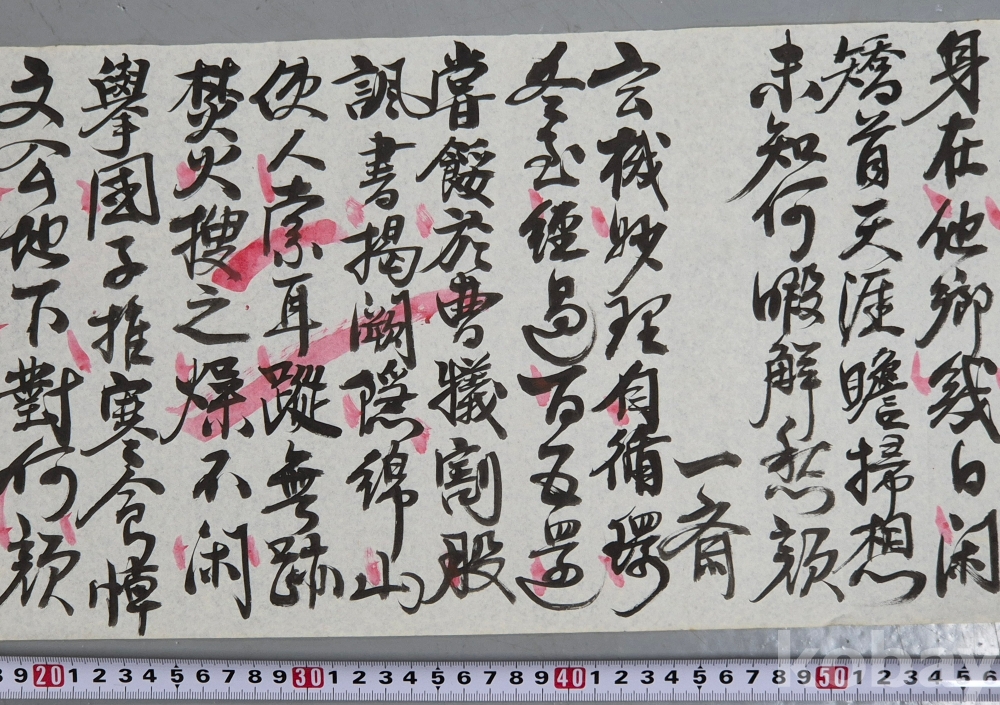 身在他鄉幾日閑
矯首天涯瞻掃想
未知何暇解愁顔
一齋
玄機妙理自循環
冬至經過百五還
嘗餒於曹犧割股
諷書揭闕隱綿山
使人索耳蹤無跡
焚火搜之燥不閑
擧國子推寒食悼
文公地下對何顔
8 9 20 1 2 3 4 5 6 7 8 9 30 1 2 3 4 5 6 7 8 9 40 1 2 3 4 5 6 7 8 9 50 1 2 3 4 5 6
kobay